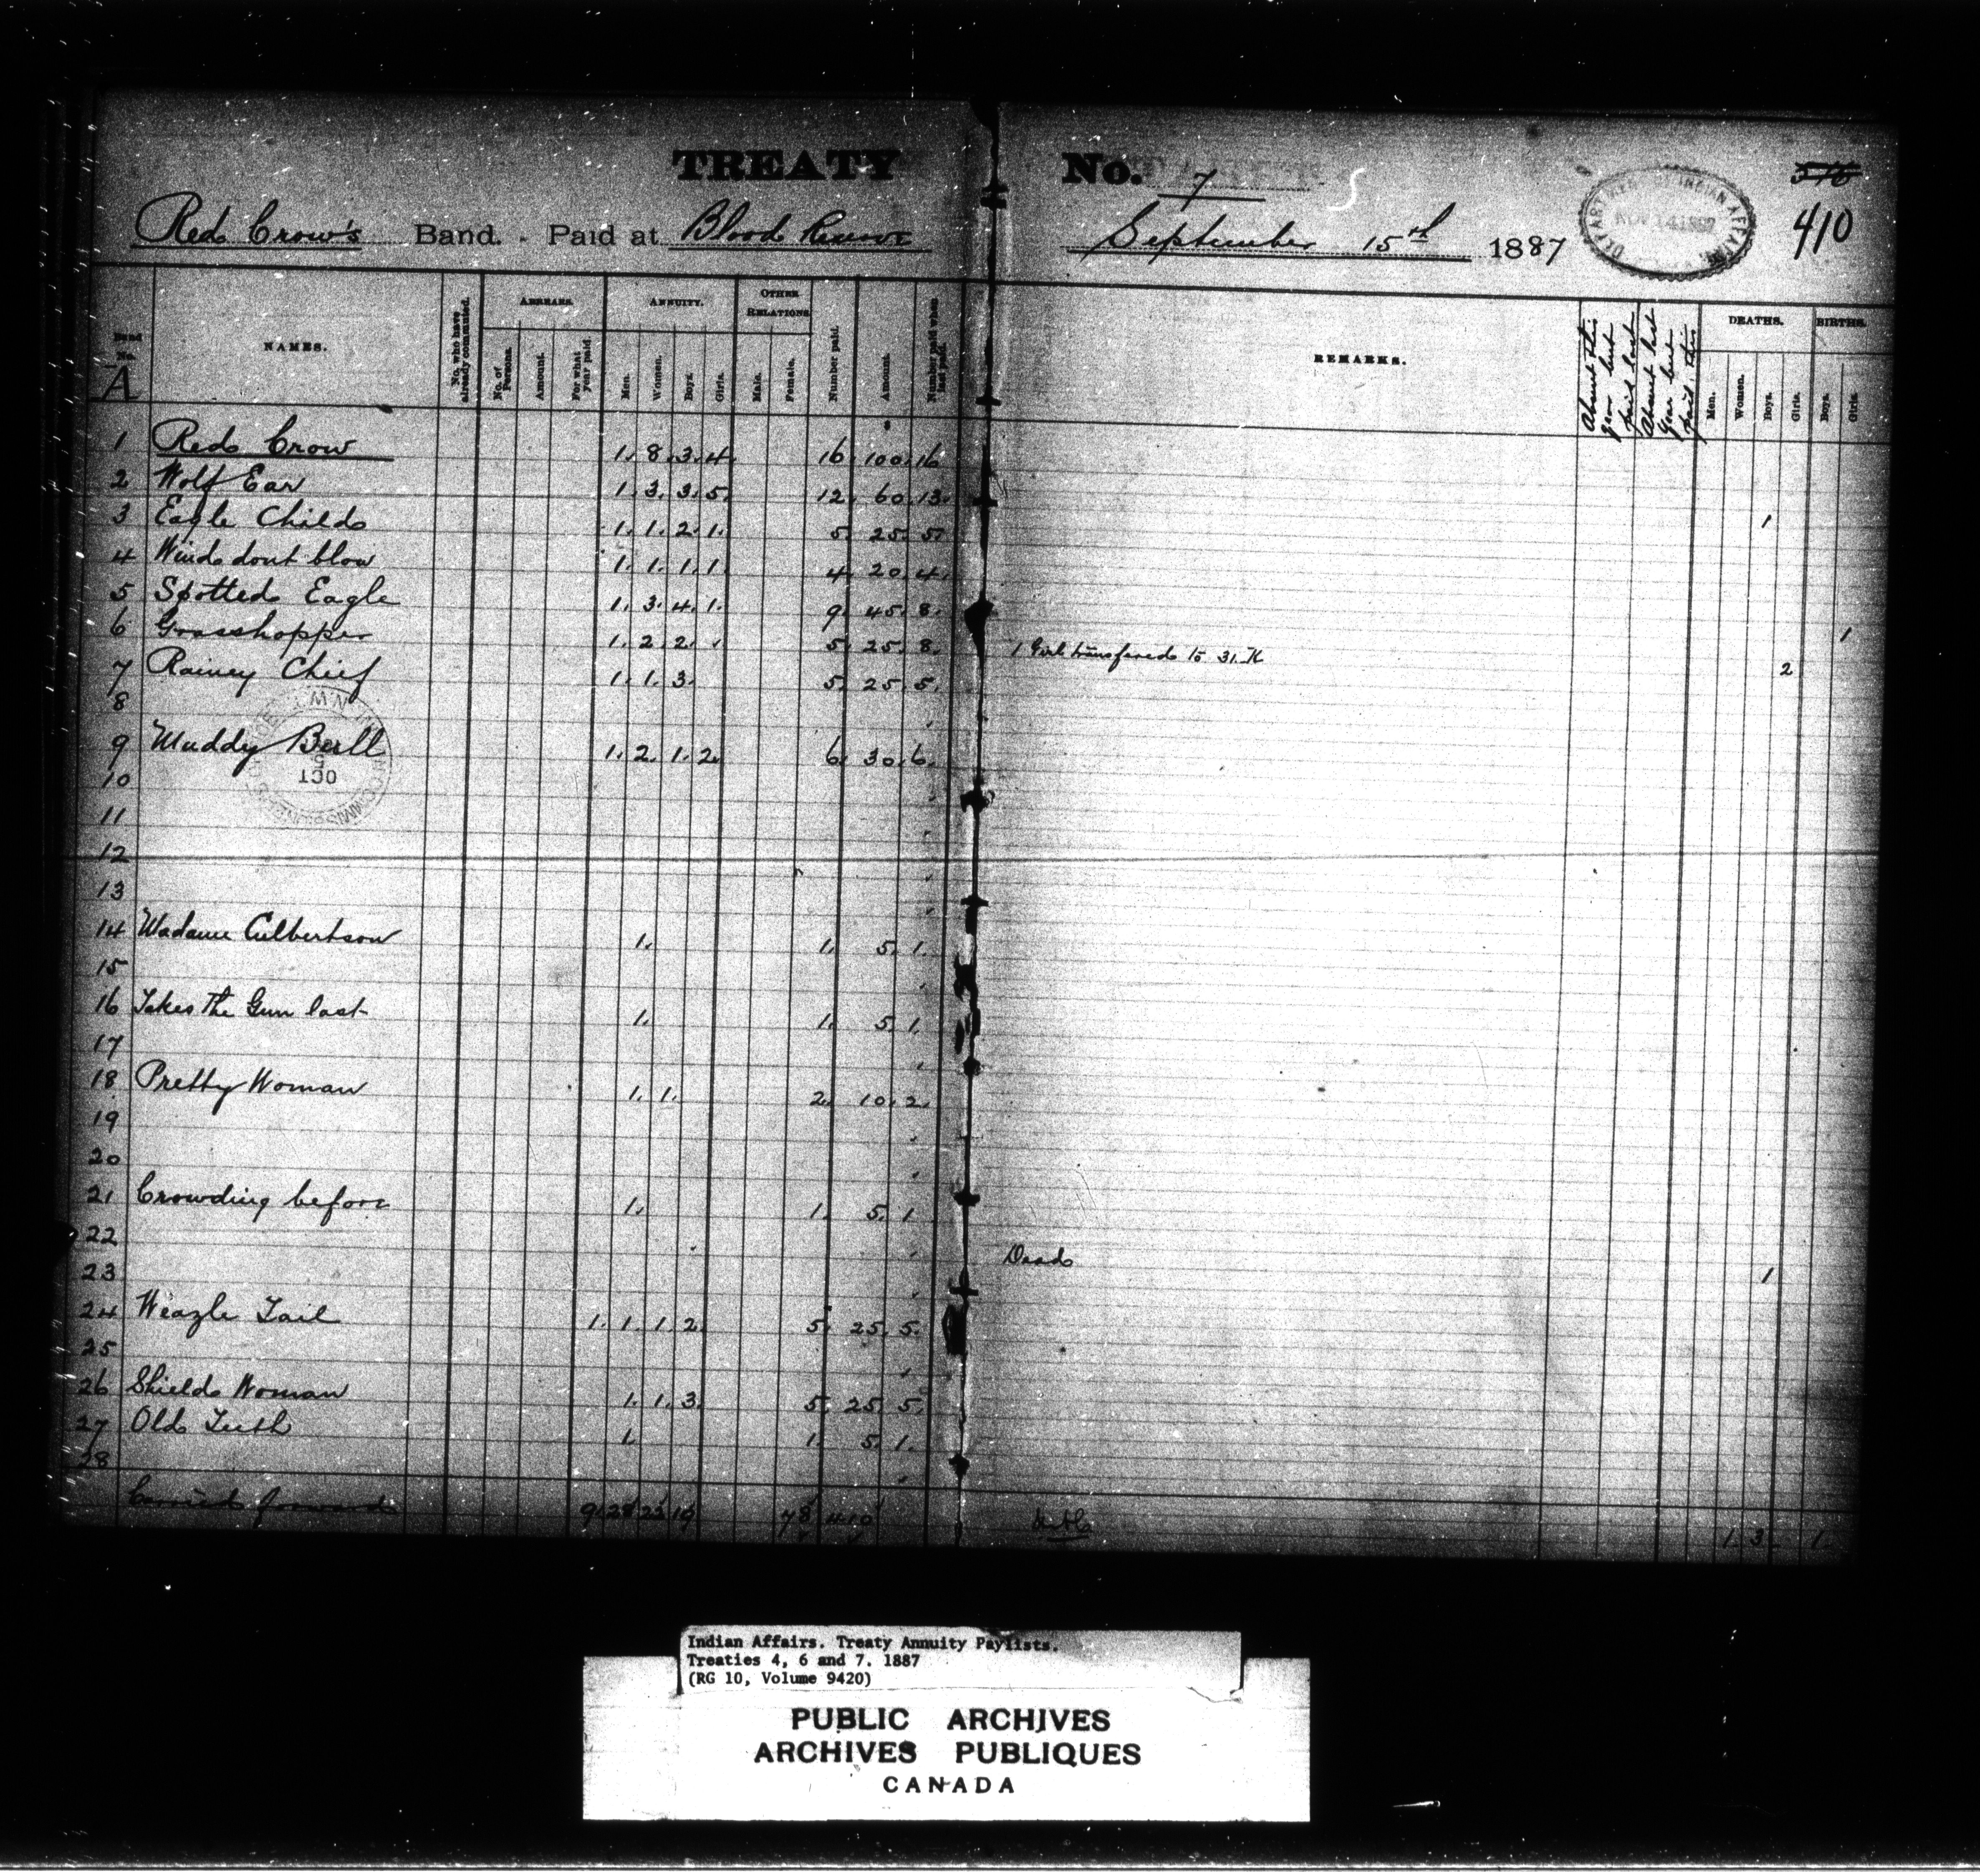 TREATY No. 7
410
Red Crow's Band. Paid at Blood Reserve September 15th 1887
DEPARTMENT OF INDIAN AFFAIRS
NOV 14 1887
Band No. A
NAMES.
No. who have already commuted.
ARREARS.
No. of Persons.
Amount.
For what year paid.
ANNUITY.
Men.
Women.
Boys.
Girls.
OTHER RELATIONS
Male.
Female.
Number paid.
Amount.
Number paid when last paid.
REMARKS.
Absent this year but paid last
Absent last year but paid this
DEATHS.
Men.
Women.
Boys.
Girls.
BIRTHS.
Boys.
Girls.
1 Red Crow 1. 8. 3. 4. 16. 100. 16
2 Wolf Ear 1. 3. 3. 5. 12. 60. 13. 1
3 Eagle Child 1. 1. 2. 1. 5. 25. 5.
4 Wind dont blow 1. 1. 1. 1 4. 20. 4.
5 Spotted Eagle 1. 3. 4. 1. 9. 45. 8. 1
6 Grasshopper 1. 2. 2. 5. 25. 8. 1 Girl transfered to 31. K 2
7 Rainey Chief 1. 1. 3. 5. 25. 5.
8
9 Muddy Bull 1. 2. 1. 2. 6. 30. 6.
OCT
10
11
12
13
14 Madame Culbertson 1. 1. 5. 1.
15
16 Takes The Gun last 1. 1. 5. 1.
17
18 Pretty Woman 1. 1. 2. 10. 2.
19
20
21 Crowding before 1. 1. 5. 1
22 Dead
23 1
24 Weazle Tail 1. 1. 1. 2. 5. 25. 5.
25
26 Shield Woman 1. 1. 3. 5. 25. 5.
27 Old Teeth 1. 1. 5. 1.
28
Carried forward 9. 28 23 19 78 410 1. 3. 1.
Indian Affairs. Treaty Annuity Paylists.
Treaties 4, 6 and 7. 1887
(RG 10, Volume 9420)
PUBLIC ARCHIVES
ARCHIVES PUBLIQUES
CANADA